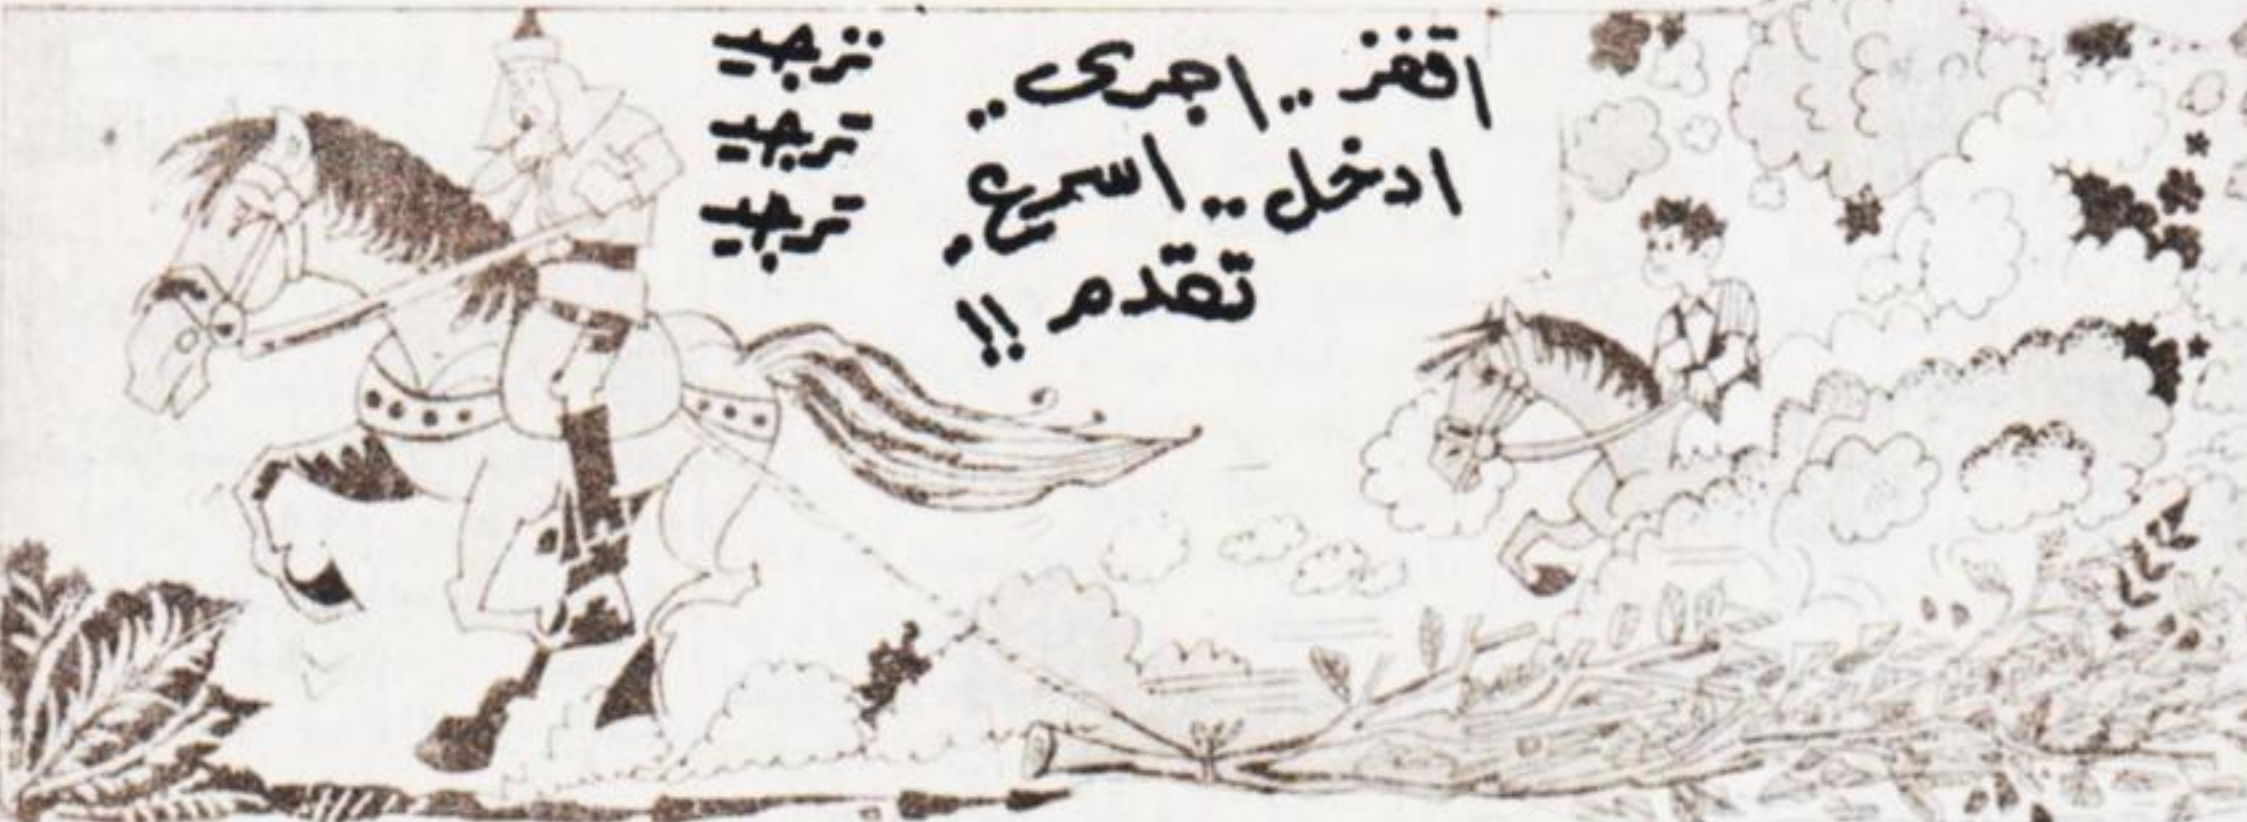 اقفز .. اجرى ..
ادخل .. اسرع .
تقدم !!
ترجيد
ترجيد
ترجيد